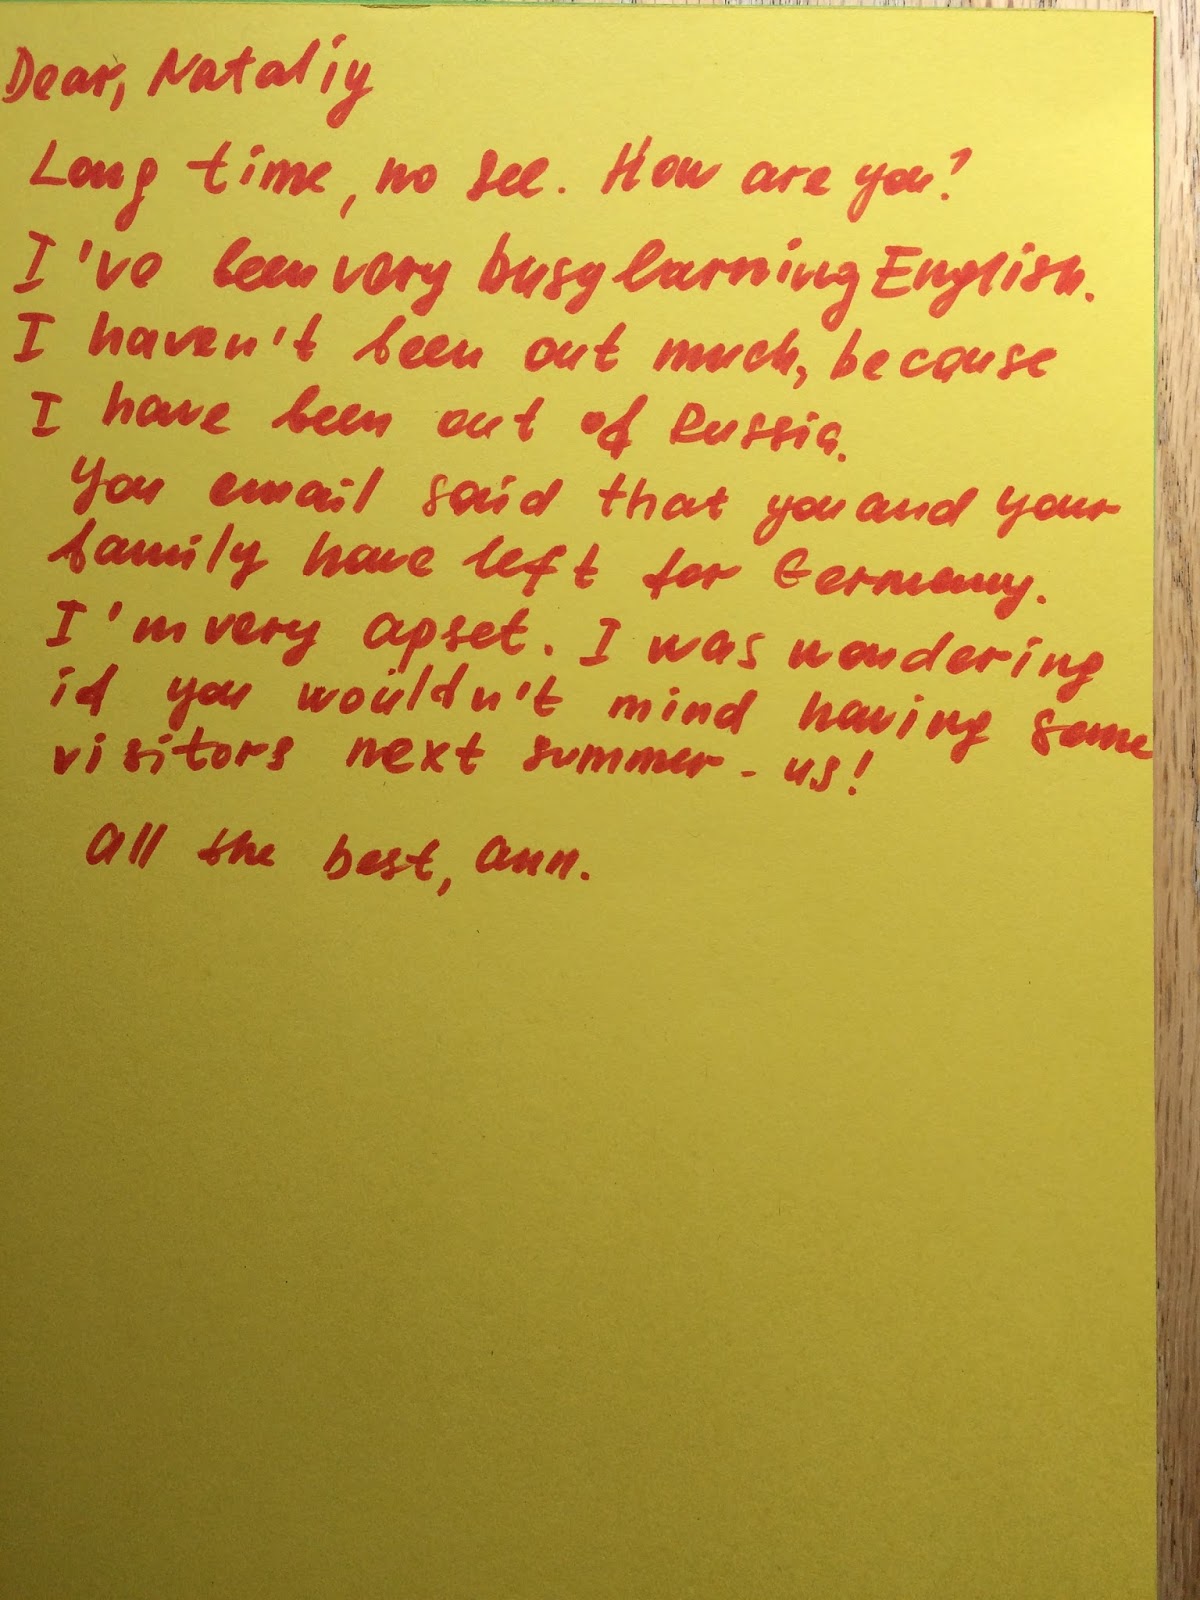 Dear, Nataliy
Long time, no see. How are you?
I've been very busy larning English.
I haven't been out much, because
I have been out of Russia.
You email said that you and your
family have left for Germany.
I'm very apset. I was wondering
if you wouldn't mind having some
visitors next summer - us!
All the best, Ann.